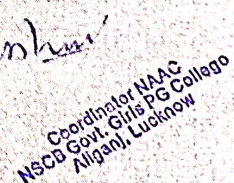 Coordinator NAAC
NSCB Govt. Girls PG College
Aliganj, Lucknow